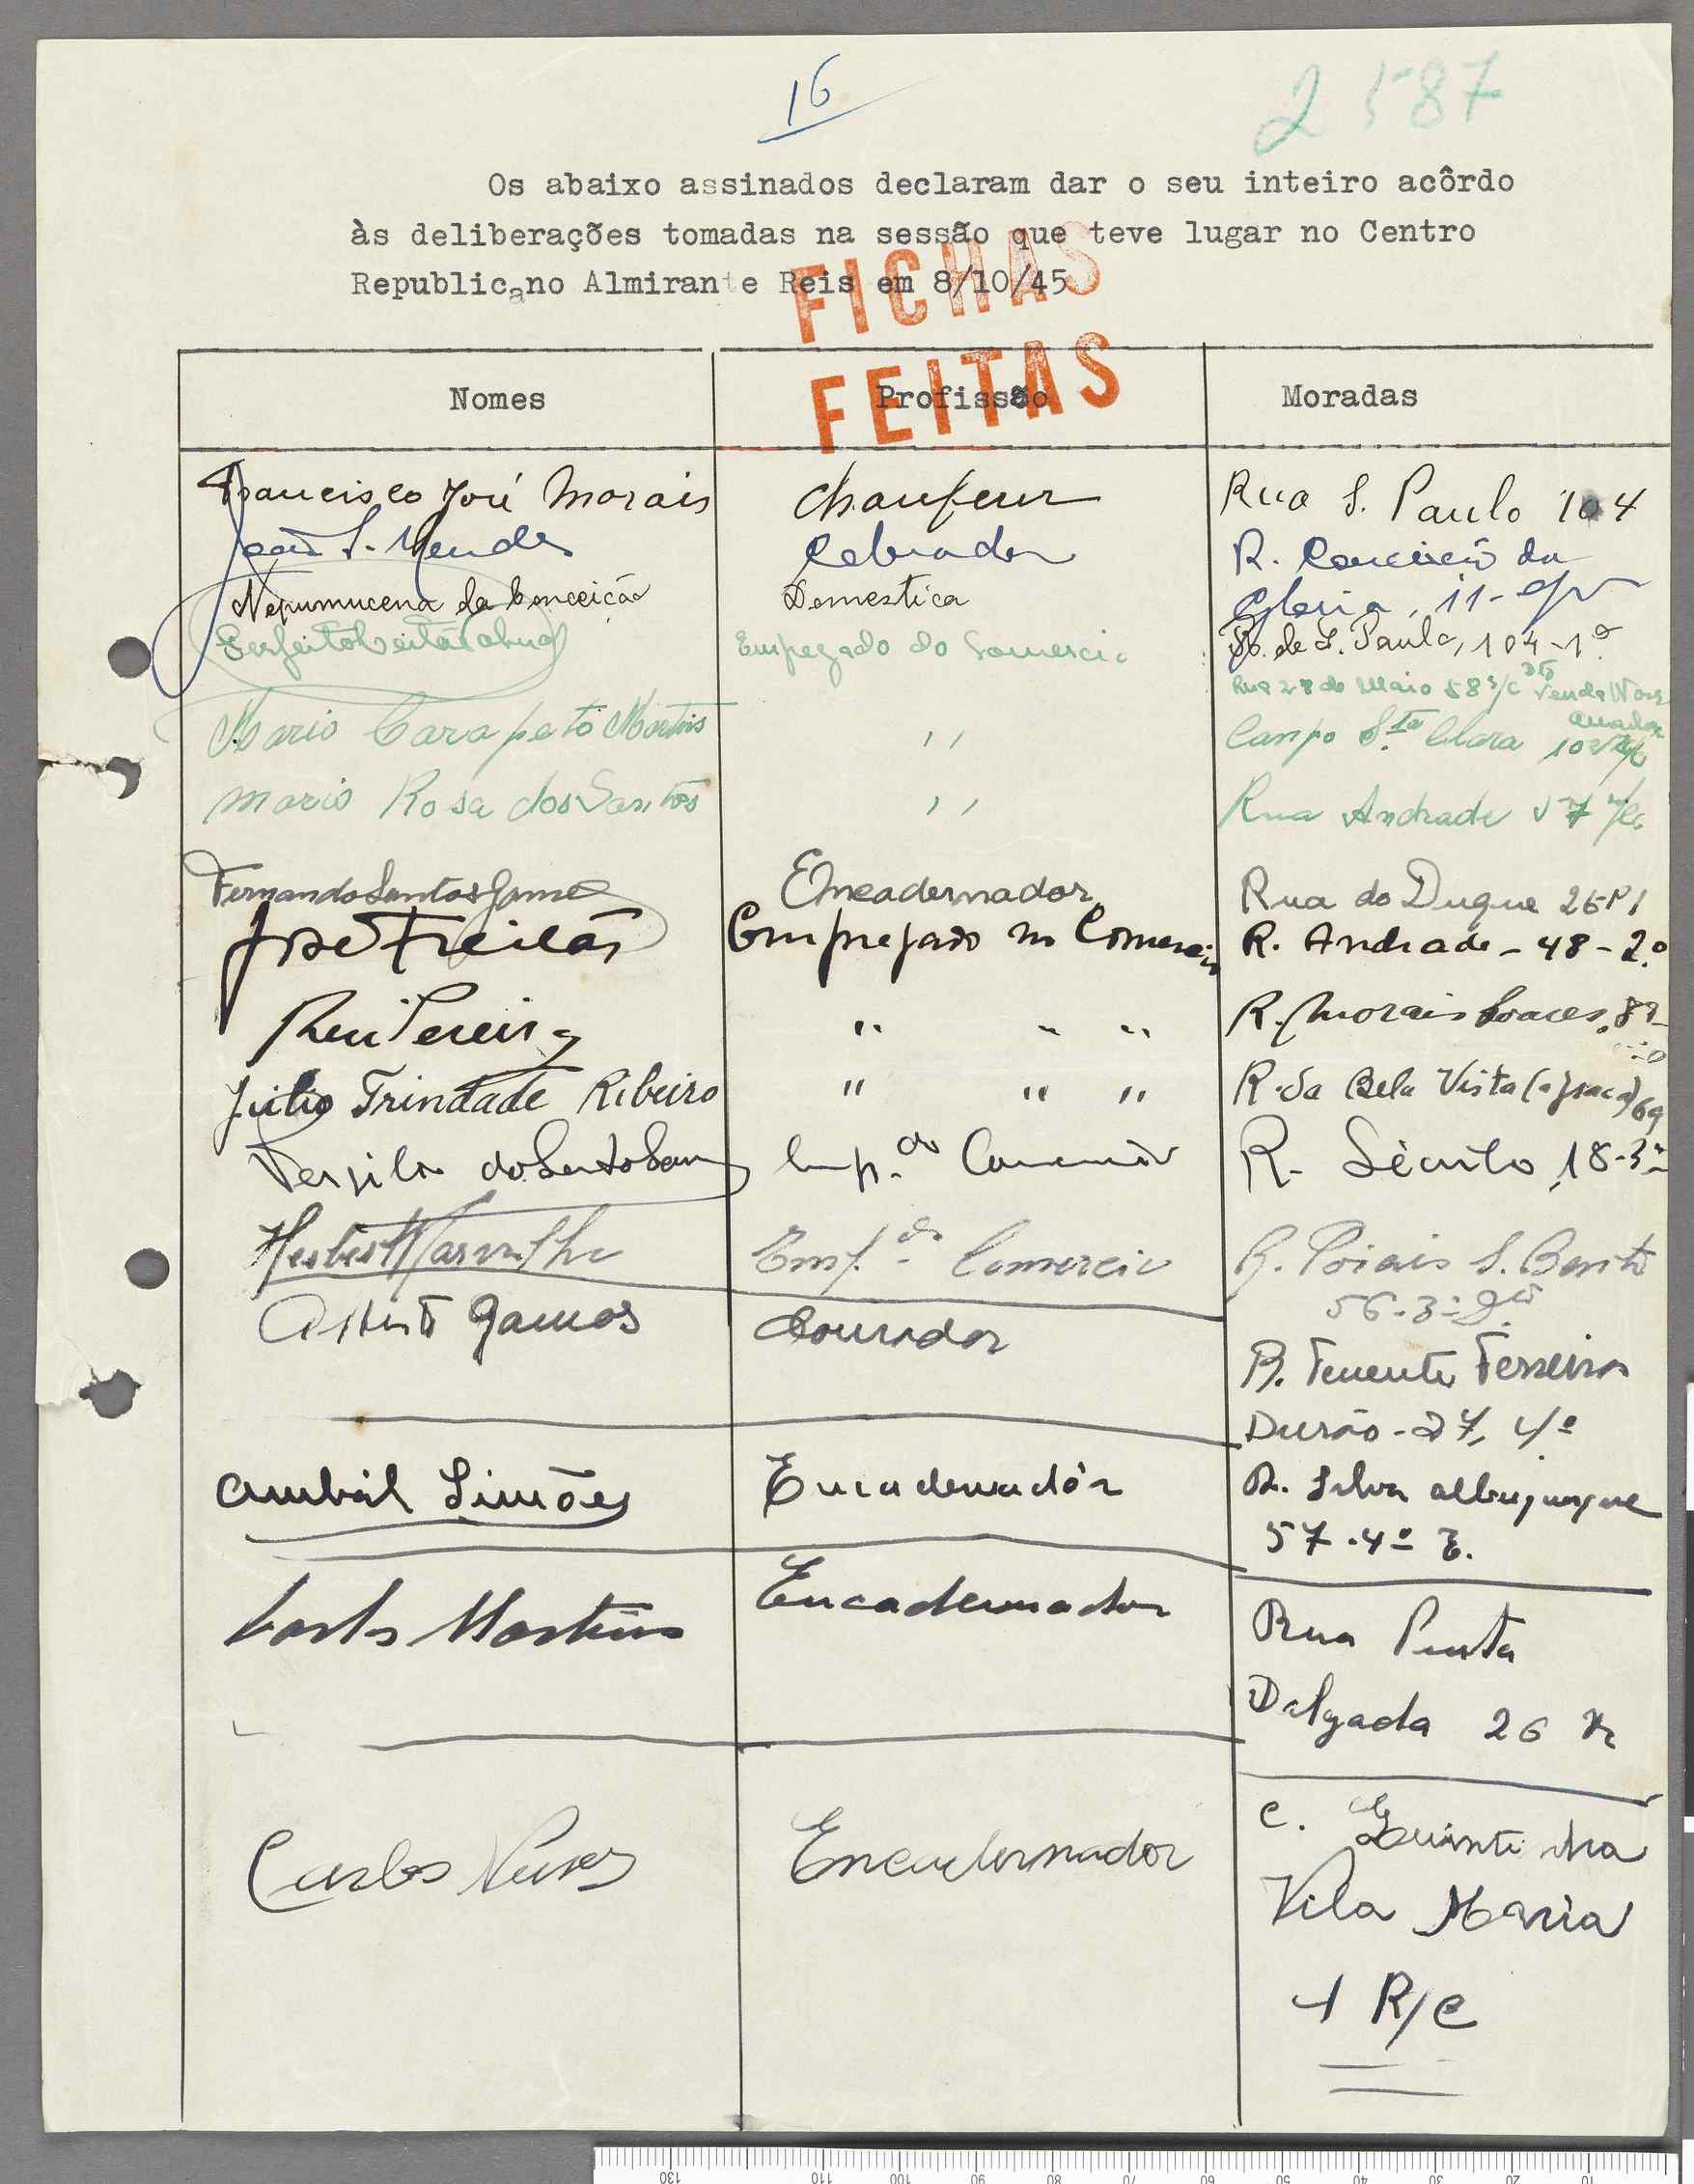 16
2587
Os abaixo assinados declaram dar o seu inteiro acôrdo
às deliberações tomadas na sessão que teve lugar no Centro
Republicano Almirante Reis em 8/10/45
FICHAS
FEITAS
Nomes Profissão Moradas
Francisco José Morais Chaufeur Rua S. Paulo 104
João S. Mendes Cobrador R. Conceição da
Gloria, 11
Nepumucena da Conceição Domestica R. de S. Paulo, 104-1º
Perfeito Leitão Empegado do Comercio Rua 28 de Maio 58 r/c Dto Venda Nova
Amadora
Mario Carapeto Martins ,, Campo Sta Clara 102 r/c
Mario Rosa dos Santos ,, Rua Andrade 57 r/c
Fernando Santos Gomes Encadernador Rua do Duque 26
José Freitas Empregado no Comercio R. Andrade - 48 - 2.º
Rui Pereira " " " R. Morais Soares, 87
Julio Trindade Ribeiro " " " R. da Bela Vista (a graça) 69
Emp.do Comercio R. Século, 18-3º
Herbert Emp. do Comercio R. Poiais S. Bento
56-3º
Alberto Gamos Dourador R. Tenente Ferreira
Durão - 27, 4º
Anibal Simões Encadernadôr R. Silva Albuquerque
57-4º E.
Carlos Martins Encadernador Rua Ponta
Delgada 26
Carlos Neves Encadernador C. Quintinha
Vila Maria
1 R/C